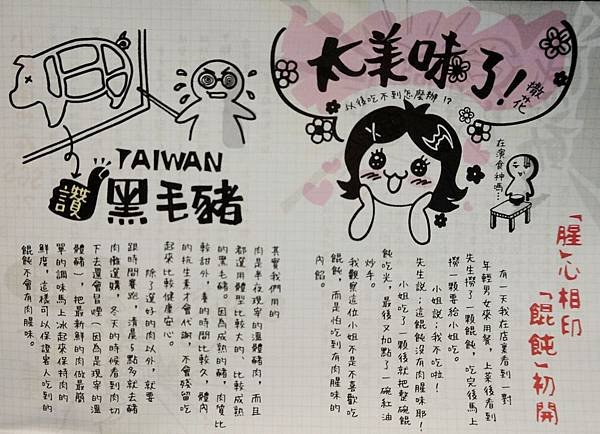 太美味了!
撒花
以後吃不到怎麼辦!?
在演食神嗎…
「腥」心相印
「餛飩」初開
有一天我在店裏看到一對
年輕男女來用餐,上菜後看到
先生撈了一顆餛飩,吃完後馬上
撈一顆要給小姐吃。
小姐說:我不吃啦!
先生說:這餛飩沒有肉腥味耶!
小姐吃了一顆後就把整碗餛
飩吃光,最後又加點了一碗紅油
炒手。
我觀察這位小姐不是不喜歡吃
餛飩,而是怕吃到有肉腥味的
內餡。
TAIWAN
讚
黑毛豬
其實我們用的
肉是半夜現宰的溫體豬肉,而且
都選用體型比較大的、比較成熟
的黑毛豬。因為成熟的豬,肉質比
較甜外,養的時間比較久,體內
的抗生素才會代謝,不會殘留吃
起來比較健康安心。
除了選好的肉以外,就要
跟時間賽跑,清晨5點多就去豬
肉攤選購,冬天的時候看到肉切
下去還會冒煙(因為是現宰的溫
體豬),把最新鮮的肉做最簡
單的調味馬上冰起來保持肉的
鮮度,這樣可以保證客人吃到的
餛飩不會有肉腥味。